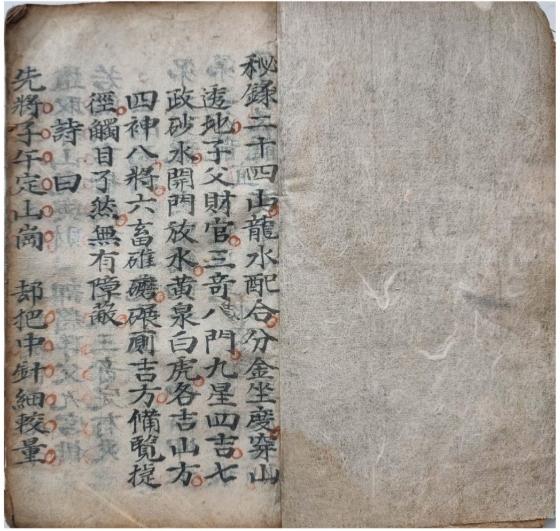 秘錄二十四山龍水配合分金坐度穿山
透地子父財官三奇八門九星四吉七
政砂水開門放水黃泉白虎各吉山方
四神八將六畜碓碾廁吉方備覽捷
徑觸目了然無有障蔽
詩曰
先將子午定山崗 却把中針細較量